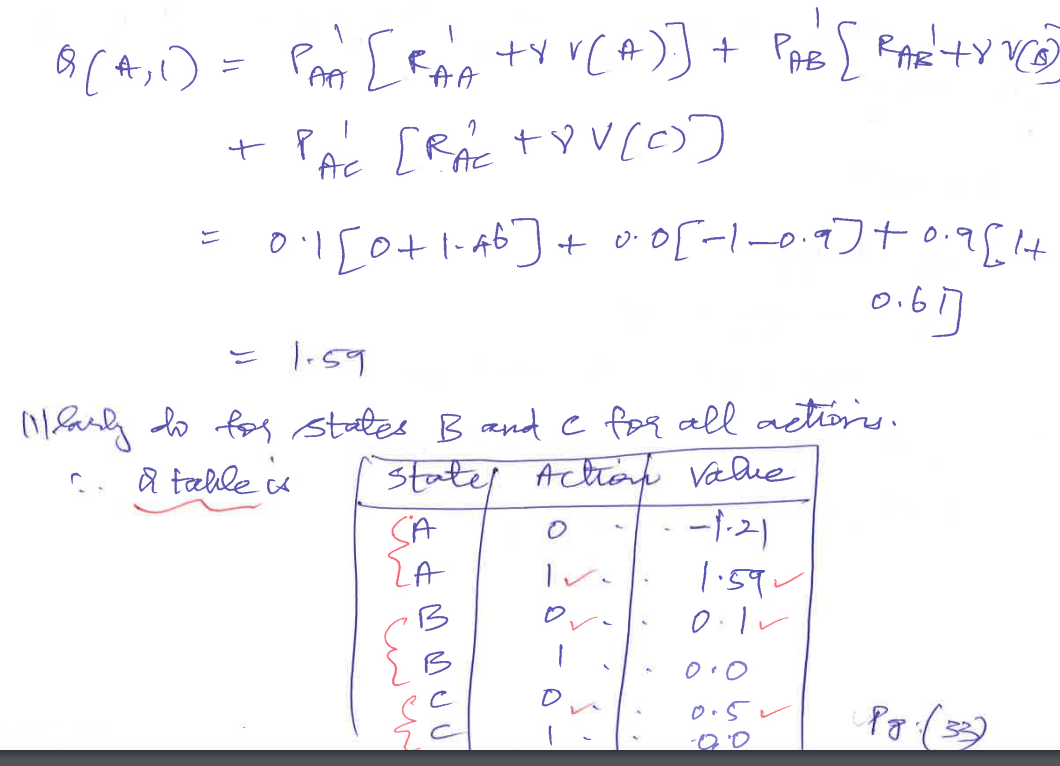 Q(A,1) = P¹AA [R¹AA + γ V(A)] + P¹AB [R¹AB + γ V(B)]
+ P¹AC [R¹AC + γ V(C)]
= 0.1[0+1.46] + 0.0[-1-0.9] + 0.9[1+
0.61]
= 1.59
|||larly do for states B and C for all actions.
∴ Q table is
State Action Value
A 0 -1.21
A 1 ✓ 1.59 ✓
B 0 ✓ 0.1 ✓
B 1 0.0
C 0 ✓ 0.5 ✓
C 1 0.0
Pg:(33)